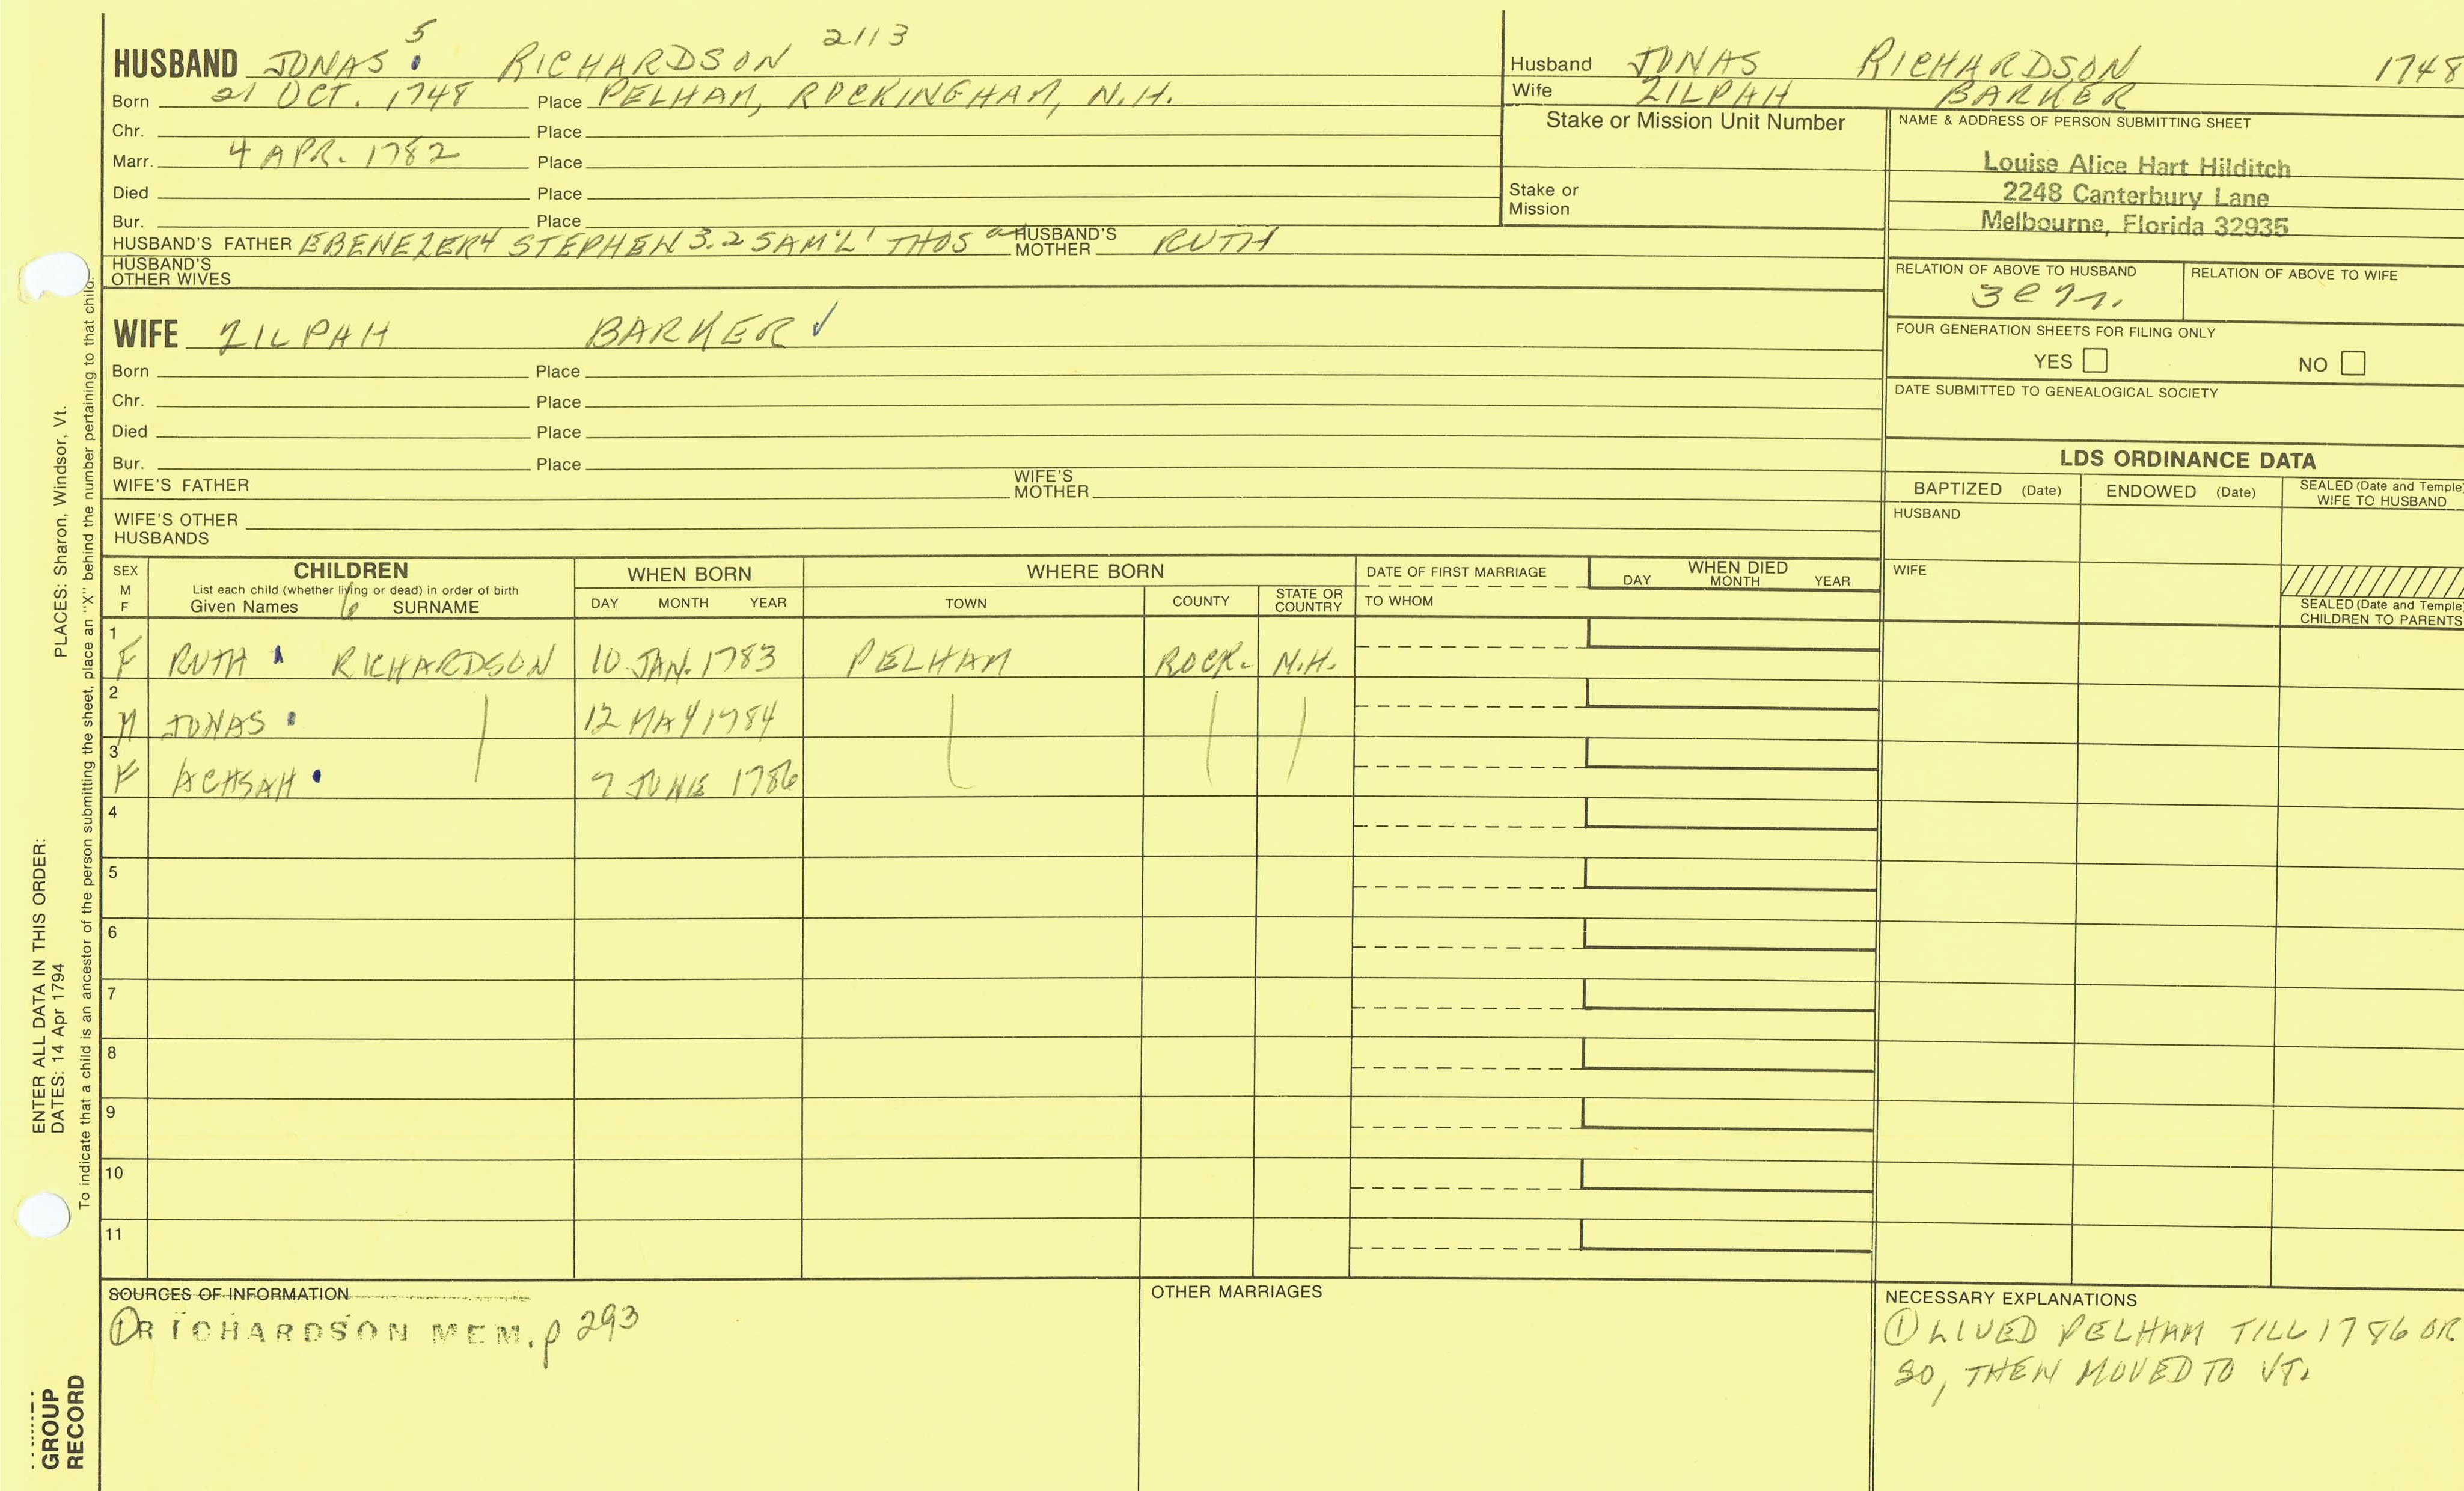 HUSBAND JONAS 5 RICHARDSON 2113
Born 21 OCT. 1748 Place PELHAM, ROCKINGHAM, N.H.
Chr. Place
Marr. 4 APR. 1782 Place
Died Place
Bur. Place
HUSBAND'S FATHER EBENEZER4 STEPHEN 3.2 SAM'L' THOS HUSBAND'S MOTHER RUTH
HUSBAND'S OTHER WIVES
WIFE ZILPAH BARKER ✓
Born Place
Chr. Place
Died Place
Bur. Place
WIFE'S FATHER WIFE'S MOTHER
WIFE'S OTHER HUSBANDS
Husband JONAS RICHARDSON 1748
Wife ZILPAH BARKER
Stake or Mission Unit Number
Stake or
Mission
NAME & ADDRESS OF PERSON SUBMITTING SHEET
Louise Alice Hart Hilditch
2248 Canterbury Lane
Melbourne, Florida 32935
RELATION OF ABOVE TO HUSBAND RELATION OF ABOVE TO WIFE
FOUR GENERATION SHEETS FOR FILING ONLY
YES NO
DATE SUBMITTED TO GENEALOGICAL SOCIETY
LDS ORDINANCE DATA
BAPTIZED (Date) ENDOWED (Date) SEALED (Date and Temple) WIFE TO HUSBAND
HUSBAND
WIFE
SEALED (Date and Temple)
CHILDREN TO PARENTS
SEX M F CHILDREN WHEN BORN WHERE BORN DATE OF FIRST MARRIAGE WHEN DIED
List each child (whether living or dead) in order of birth
Given Names 6 SURNAME DAY MONTH YEAR TOWN COUNTY STATE OR COUNTRY TO WHOM DAY MONTH YEAR
1 F RUTH RICHARDSON 10 JAN. 1783 PELHAM ROCK. N.H.
2 M JONAS 12 MAY 1784
3 F ACHSAH 7 JUNE 1786
4
5
6
7
8
9
10
11
SOURCES OF INFORMATION
① RICHARDSON MEM. p 293
OTHER MARRIAGES
NECESSARY EXPLANATIONS
① LIVED PELHAM TILL 1786 OR
SO, THEN MOVED TO VT.
ENTER ALL DATA IN THIS ORDER:
DATES: 14 Apr 1794 PLACES: Sharon, Windsor, Vt.
To indicate that a child is an ancestor of the person submitting the sheet, place an "X" behind the number pertaining to that child.
GROUP
RECORD